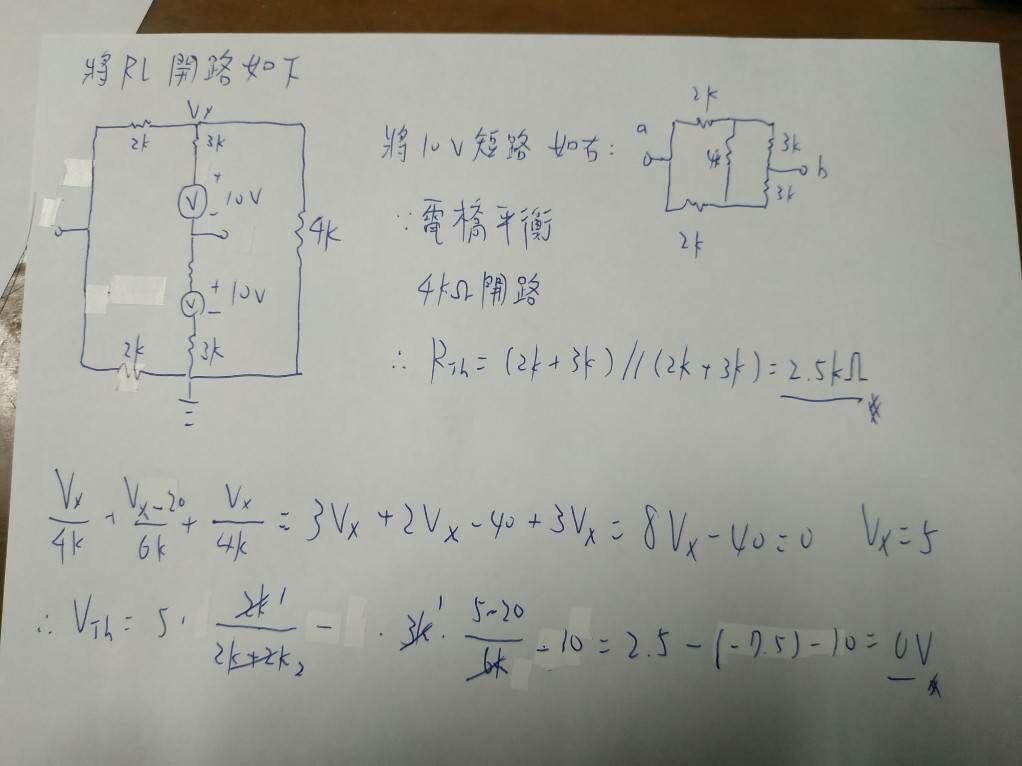 將RL開路如下
Vx
2k
3k
V
+
10V
-
4k
V
+
10V
-
2k
3k
將10V短路如右:
a
2k
4k
3k
b
3k
2k
∵電橋平衡
4kΩ開路
∴ RTh = (2k+3k) // (2k+3k) = 2.5kΩ
Vx/4k + Vx-20/6k + Vx/4k = 3Vx + 2Vx - 40 + 3Vx = 8Vx - 40 = 0 Vx = 5
∴ VTh = 5 · 2k 1/2k+2k 2 - · 3k 1 · 5-20/6k - 10 = 2.5 - (-7.5) - 10 = 0V